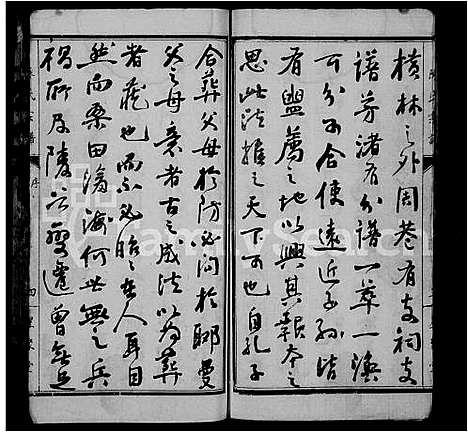 橫林之外周巷有支祠支
譜芳渚有分譜一萃一渙
可分可合使遠近子孫皆
有盥薦之地以興其報本之
思此法推之天下可也自孔子
合葬父母於防必問於郰曼
父之母意者古之成法以為葬
者藏也而不必昭之於人耳目
然而桑田滄海何世無之兵
禍所及陵谷變遷曾無
FamilySearch